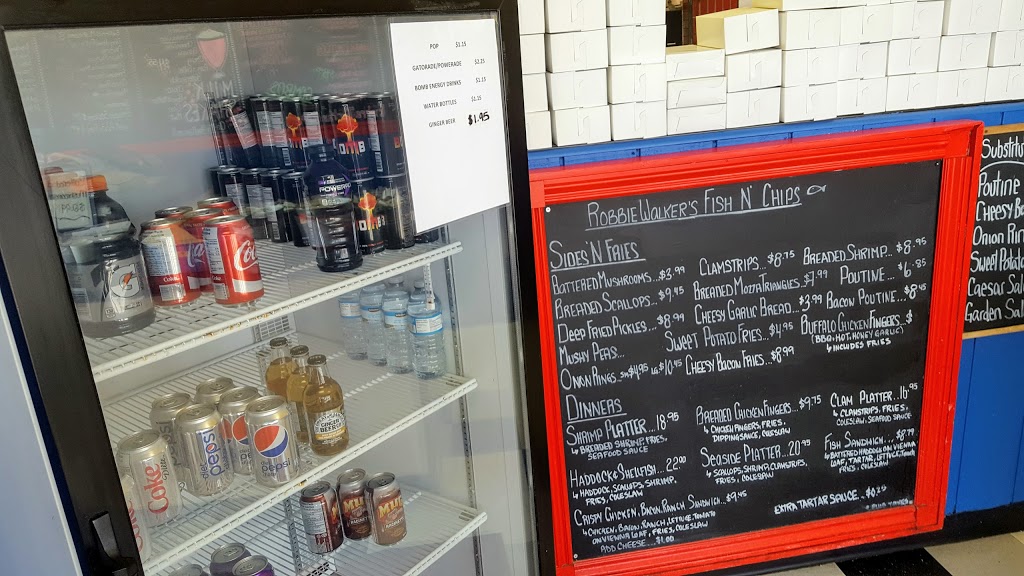 POP $1.25
GATORADE/POWERADE $2.25
BOMB ENERGY DRINKS $1.25
WATER BOTTLES $1.25
GINGER BEER $1.95
ROBBIE WALKER'S FISH N' CHIPS
SIDES 'N FRIES
BATTERED MUSHROOMS...$3.99
BREADED SCALLOPS...$9.45
DEEP FRIED PICKLES...$8.99
MUSHY PEAS...
ONION RINGS...SM $4.95 LG $10.45
CLAMSTRIPS...$8.75
BREADED MOZZA TRIANGLES...$7.99
CHEESY GARLIC BREAD...$3.99
SWEET POTATO FRIES...$4.95
CHEESY BACON FRIES...$8.99
BREADED SHRIMP...$8.95
POUTINE...$6.85
BACON POUTINE...$8.45
BUFFALO CHICKEN FINGERS...$
(BBQ, HOT, HONEY GARLIC)
4 INCLUDES FRIES
DINNERS
SHRIMP PLATTER...18.95
BREADED SHRIMP, FRIES,
SEAFOOD SAUCE
HADDOCK & SHELLFISH...22.00
HADDOCK, SCALLOPS, SHRIMP,
FRIES, COLESLAW
CRISPY CHICKEN, BACON, RANCH SANDWICH...$9.45
CHICKEN, BACON, RANCH, LETTUCE, TOMATO
ON VIENNA LOAF, FRIES, COLESLAW
ADD CHEESE...$1.00
BREADED CHICKEN FINGERS...$9.75
4 CHICKEN FINGERS, FRIES,
DIPPING SAUCE, COLESLAW
SEASIDE PLATTER...20.99
SCALLOPS, SHRIMP, CLAMSTRIPS,
FRIES, COLESLAW
CLAM PLATTER...16.95
CLAMSTRIPS, FRIES,
COLESLAW, SEAFOOD SAUCE
FISH SANDWICH...$8.79
BATTERED HADDOCK ON VIENNA
LOAF, TARTAR, LETTUCE, TOMATO
FRIES, COLESLAW
EXTRA TARTAR SAUCE...
Substitu
Poutine
Cheesy Ba
Onion Rin
Sweet Potato
Caesar Sal
Garden Sal
POWERADE
Coke
diet pepsi
pepsi
GINGER BEER
MUG